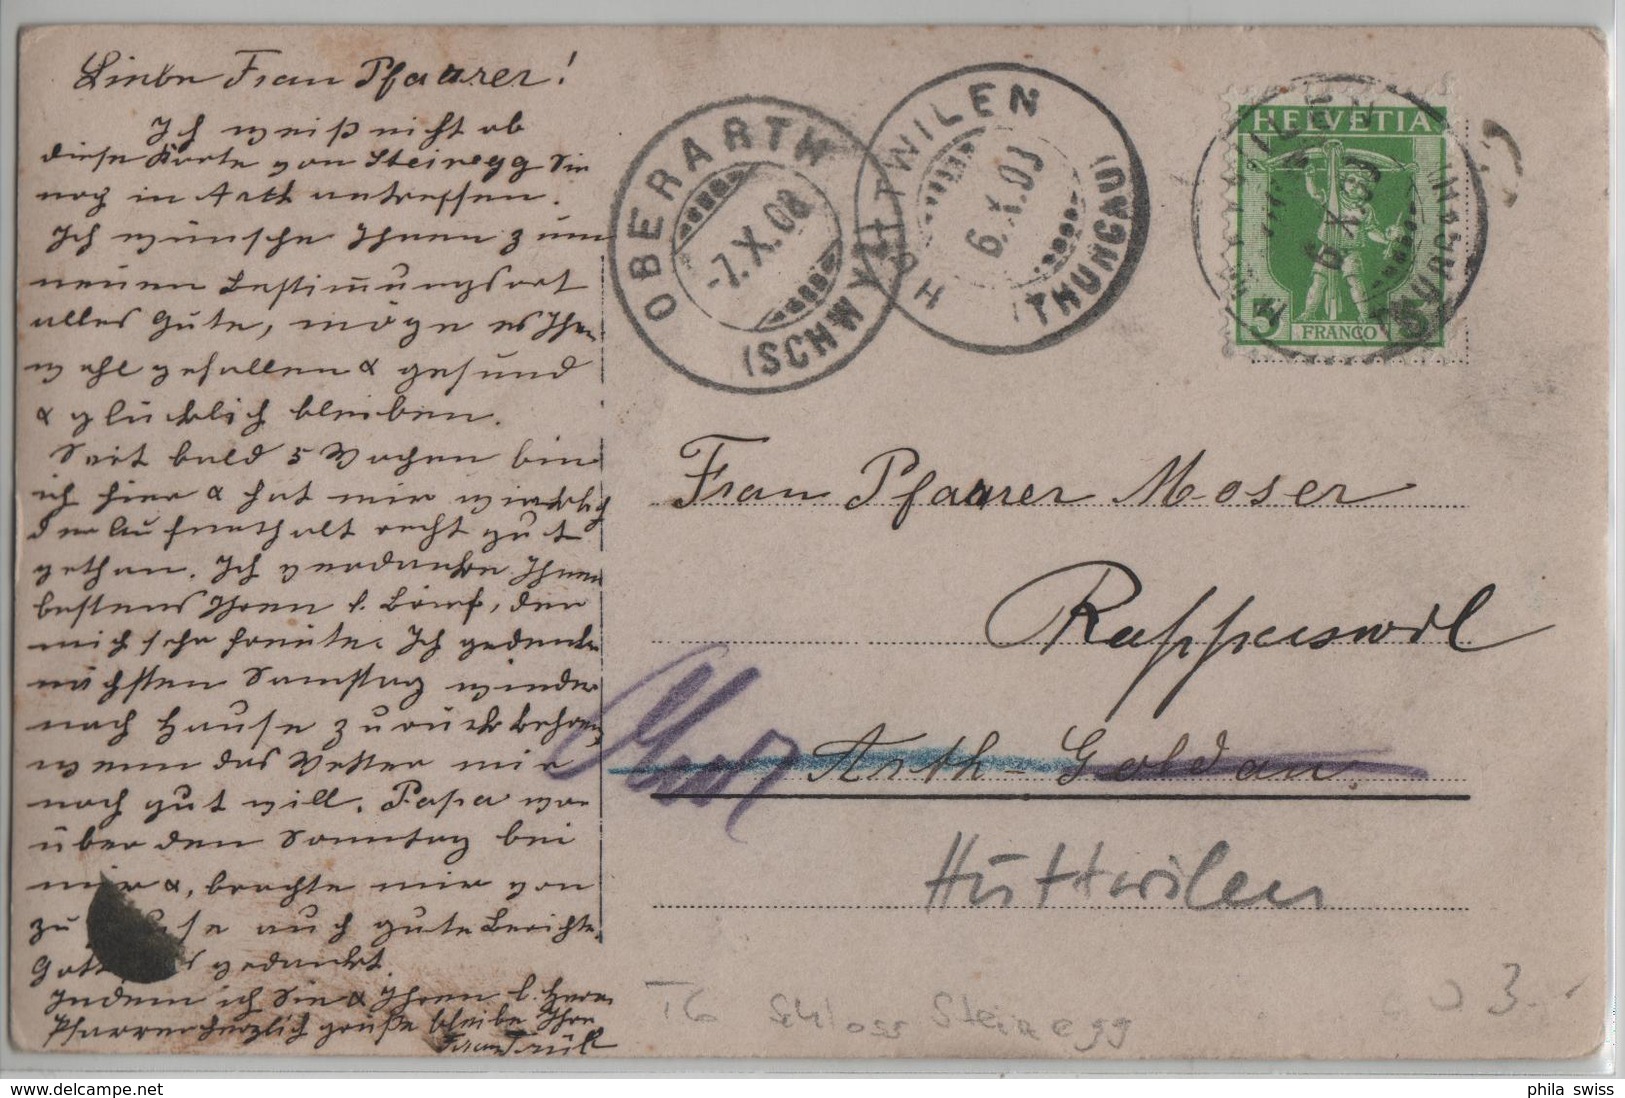 Liebe Frau Pfaarer!
Ich weiß nicht ob
diese Karte von Steinegg Sie
noch in Arth antreffen.
Ich wünsche Ihnen zum
neuen Bestim̅ungsort
alles Gute, möge es Ihnen
wohl gefallen & gesund
& glücklich bleiben.
Seit bald 5 Wochen bin
ich hier & hat mir wirklich
der Aufenthalt recht gut
gethan. Ich verdanke Ihnen
bestens Ihren l. Brief, der
mich sehr freute. Ich gedenke
nächsten Samstag wieder
nach Hause zurückkehren,
wenn das Wetter mir
noch gut will. Papa war
über den Sonntag bei
mir &, brachte mir von
zu Hause auch gute Berichte,
Gott gedankt.
Indem ich Sie & Ihren l. Herrn
Pfarrer herzlich grüße bleibe Ihre
OBERARTH
-7.X.08
(SCHWYZ)
HÜTTWILEN
6.X.09
(THURGAU)
HELVETIA
5 FRANCO 5
HÜTTWILEN
6.X.09
(THURGAU)
Frau Pfaarer Moser
Rapperswil
Arth-Goldau
Hüttwilen
TG Schloss Steinegg
3.-
www.delcampe.net
phila_swiss